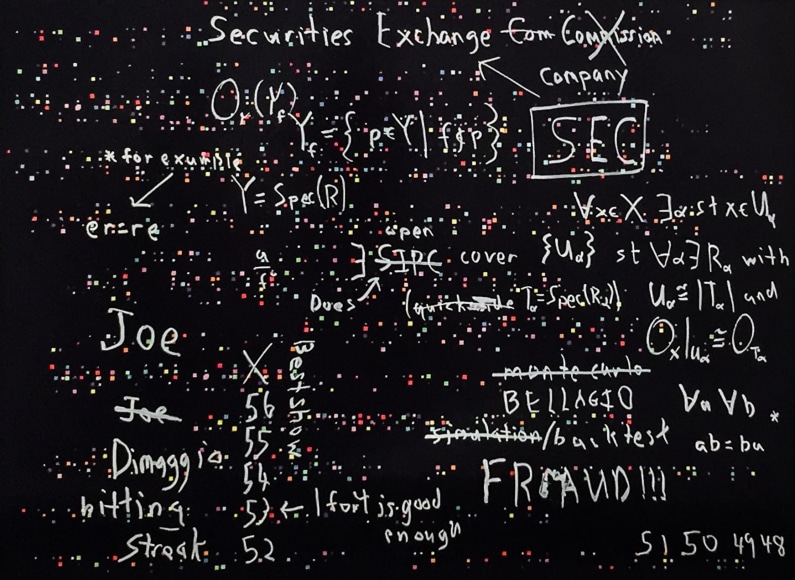 Securities Exchange Com Commission
Company
SEC
Oₓ(Y_f)
Y_f = { p ∈ Y | f ∉ p }
* for example
Y = Spec(R)
er=re
∀x∈X ∃α st x∈Uα
open
∃ SIPC cover {Uα} st ∀α∃Rα with
a/f
Does
(quick aside Tα=Spec(Rα))
Uα≅|Tα| and
Oₓ|uα≅O_Tα
Joe
X
Best Show
monte carlo
Joe
56
BELLAGIO
∀a ∀b *
55
simulation/backtest
ab=ba
Dimaggio
54
FRAAUD!!!
hitting
53 ← 1 for is good
enough
Streak
52
51 50 49 48